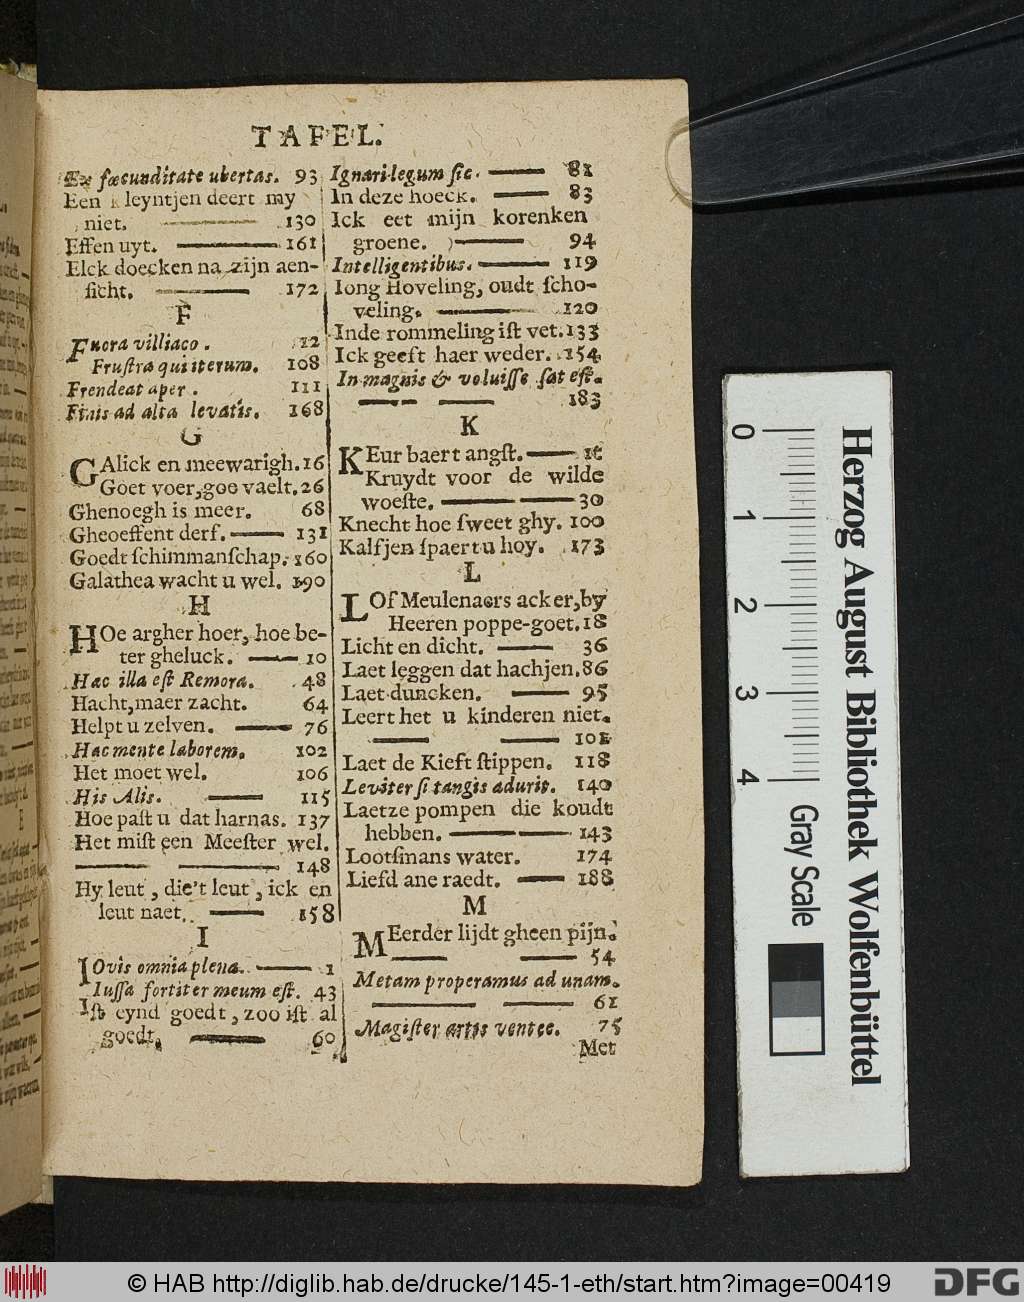 TAFEL.
Ex fœcunditate ubertas. 93
Een kleyntjen deert my
niet. 130
Effen uyt. 161
Elck doecken na zijn aen-
ſicht. 172
F
Fuora villiaco. 12
Fruſtra qui iterum. 108
Frendeat aper. 111
Finis ad alta levatis. 168
G
GAlick en meewarigh. 16
Goet voer, goe vaelt. 26
Ghenoegh is meer. 68
Gheoeffent derf. 131
Goedt ſchimmanſchap. 160
Galathea wacht u wel. 190
H
HOe argher hoer, hoe be-
ter gheluck. 10
Hac illa eſt Remora. 48
Hacht, maer zacht. 64
Helpt u zelven. 76
Hac mente laborem. 102
Het moet wel. 106
His Alis. 115
Hoe paſt u dat harnas. 137
Het miſt een Meeſter wel.
148
Hy leut, die't leut, ick en
leut naet. 158
I
IOvis omnia plena. 1
Iuſſa fortiter meum eſt. 43
Iſt eynd goedt, zoo iſt al
goedt. 60
Ignari legum ſic. 81
In deze hoeck. 83
Ick eet mijn korenken
groene. 94
Intelligentibus. 119
Iong Hoveling, oudt ſcho-
veling. 120
Inde rommeling iſt vet. 133
Ick geeft haer weder. 154
In magnis & voluiſſe ſat eſt.
183
K
KEur baert angſt.
Kruydt voor de wilde
woeſte. 30
Knecht hoe ſweet ghy. 100
Kalfjen ſpaert u hoy. 173
L
LOf Meulenaers acker, by
Heeren poppe-goet. 18
Licht en dicht. 36
Laet leggen dat hachjen. 86
Laet duncken. 95
Leert het u kinderen niet.
101
Laet de Kieft ſtippen. 118
Leviter ſi tangis adurit. 140
Laetze pompen die koudt
hebben. 143
Lootſmans water. 174
Liefd ane raedt. 188
M
MEerder lijdt gheen pijn.
54
Metam properamus ad unam.
61
Magiſter artis ventee. 75
Met
0 1 2 3 4
Gray Scale
Herzog August Bibliothek Wolfenbüttel
© HAB http://diglib.hab.de/drucke/145-1-eth/start.htm?image=00419
DFG